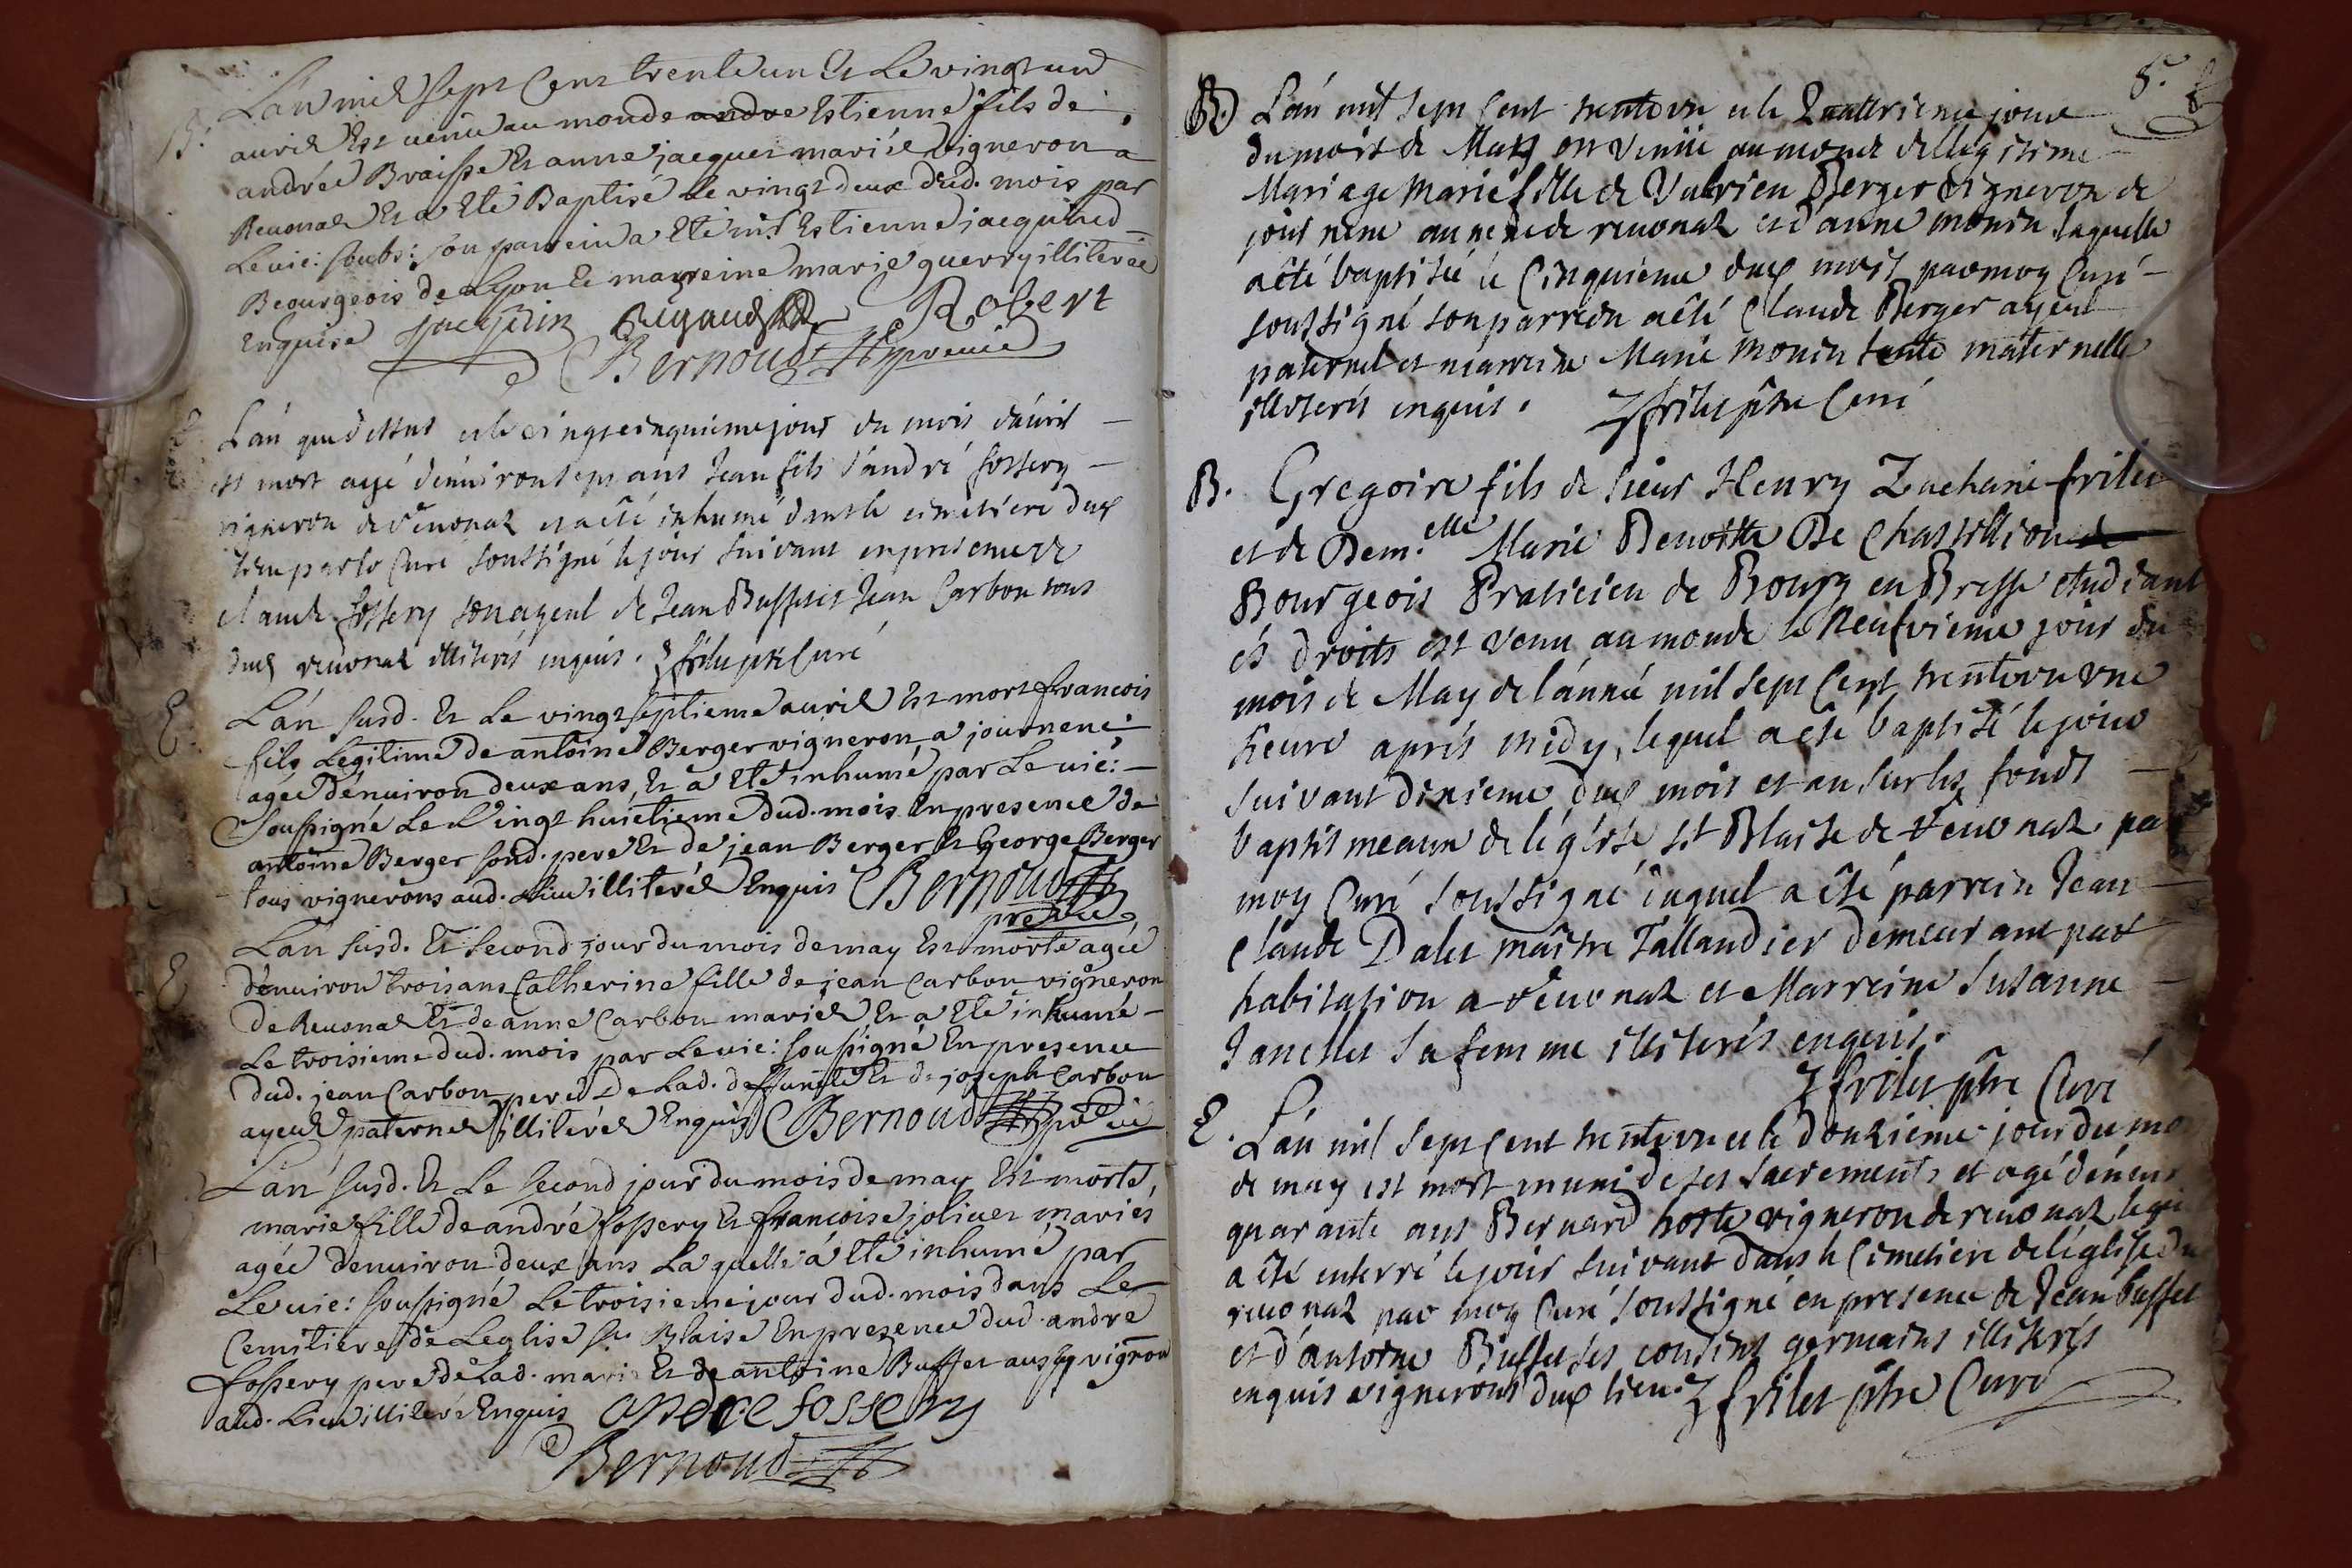 L'an mil sept Cent trente un Et Le vingt un
B. avril Est venu au monde andre Estienne fils de
andrée Braisse Et anne jacquet mariés vigneron a
Revonas Et a Eté Baptisé Le vingt deux dud. mois par
Le vic: soubs: son parrein a Eté Estienne jacquined
Beourgeois de Lyon Et marreine marie guerry illiterée
Enquise jacquin Robert
Bernoud p vic
L'an que dessus et le vingt cinquieme jour du mois d'avril
est mort agé d'environ sept ans Jean fils d'andré fossery
vigneron de Revonaz et a été inhumé dans le cimetiere dud
lieu par le Curé soussigné le jour suivant en presence de
claude fossery son ayeul de Jean Buffet et Jean Carbon tous
dud revonaz illiterés enquis. frilet ptre Curé
E. L'an susd. Et Le vingt septieme avril Est mort francois
fils Legitime de antoine Berger vigneron a journene
agée d'environ deux ans, Et a Eté inhumé par Le vic:
Soussigné Le Vingt huictieme dud. mois En presence de
antoine Berger sond. pere Et de jean Berger Et George Berger
tous vignerons aud. Lieu illiterés Enquis Bernoud
pre vic
E L'an susd. Et second jour du mois de may Est morte agée
d'environ trois ans Catherine fille de jean Carbon vigneron
de Revonas Et de anne Carbon mariés Et a Eté inhumé
Le troisieme dud. mois par Le vic: soussigné En presence
dud. jean Carbon pere De Lad. deffuncte Et de joseph Carbon
ayeul paternel illiterés Enquis Bernoud p vic
L'an susd. Et Le second jour du mois de may Est morte,
marie fille de andré fossery Et francoise jolivet mariés
agée denviron deux ans La quelle a Eté inhumé par
Le vic: soussigné Le troisieme jour dud. mois dans Le
Cemitiere de Leglise St Blaise En presence dud. andre
fossery pere de Lad. marie Et de antoine Buffet aussy vigron
aud. Lieu illiteré Enquis andre fossery
Bernoud
8.
B. L'an mil sept Cent trente un et le Quattrieme jour
du mois de May est venüe au monde de legitime
Mariage Marie fille de Valerien Berger Vigneron de
journene annexe de revonaz et d'anne monin laquelle
a été baptisée le Cinquieme dud mois par moy Curé
soussigné son parrein a été Claude Berger ayeul
paternel et marreine Marie monin tante maternelle
illiterés enquis. Z frilet ptre Curé
B. Gregoire fils de sieur Henry Zacharie frilet
et de Dem.elle Marie Benoitte De Chastillion de
Bourgeois Praticien de Bourg en Bresse etudiant
és droits est venu au monde le Neufvieme jour du
mois de May de l'année mil sept Cent trente un une
heure aprés midy, lequel a été baptisé le jour
suivant dixieme dud mois et an sur les fonds
baptismeaux de l'églíse St Blaise de Revonaz pa
moy Curé soussigné duquel a été parrein Jean
Claude Dalet maître Tallandier demeurant par
habitation a Revonaz et Marreine Susanne
Janellet sa femme illiterés enquis.
Z frilet ptre Curé
E. L'an mil sept cent trente un et le douzieme jour du mo
de may est mort muni de ses sacrements et agé d'envir
quarante ans Bernard hoste vigneron de revonaz lequ
a été enterré le jour suivant dans le Cimetiere de l'église du
revonaz par moy Curé soussigné en presence de Jean buffet
et d'antoine Buffet ses cousins germains illiterés
enquis vignerons dud lieu. Z frilet ptre Curé